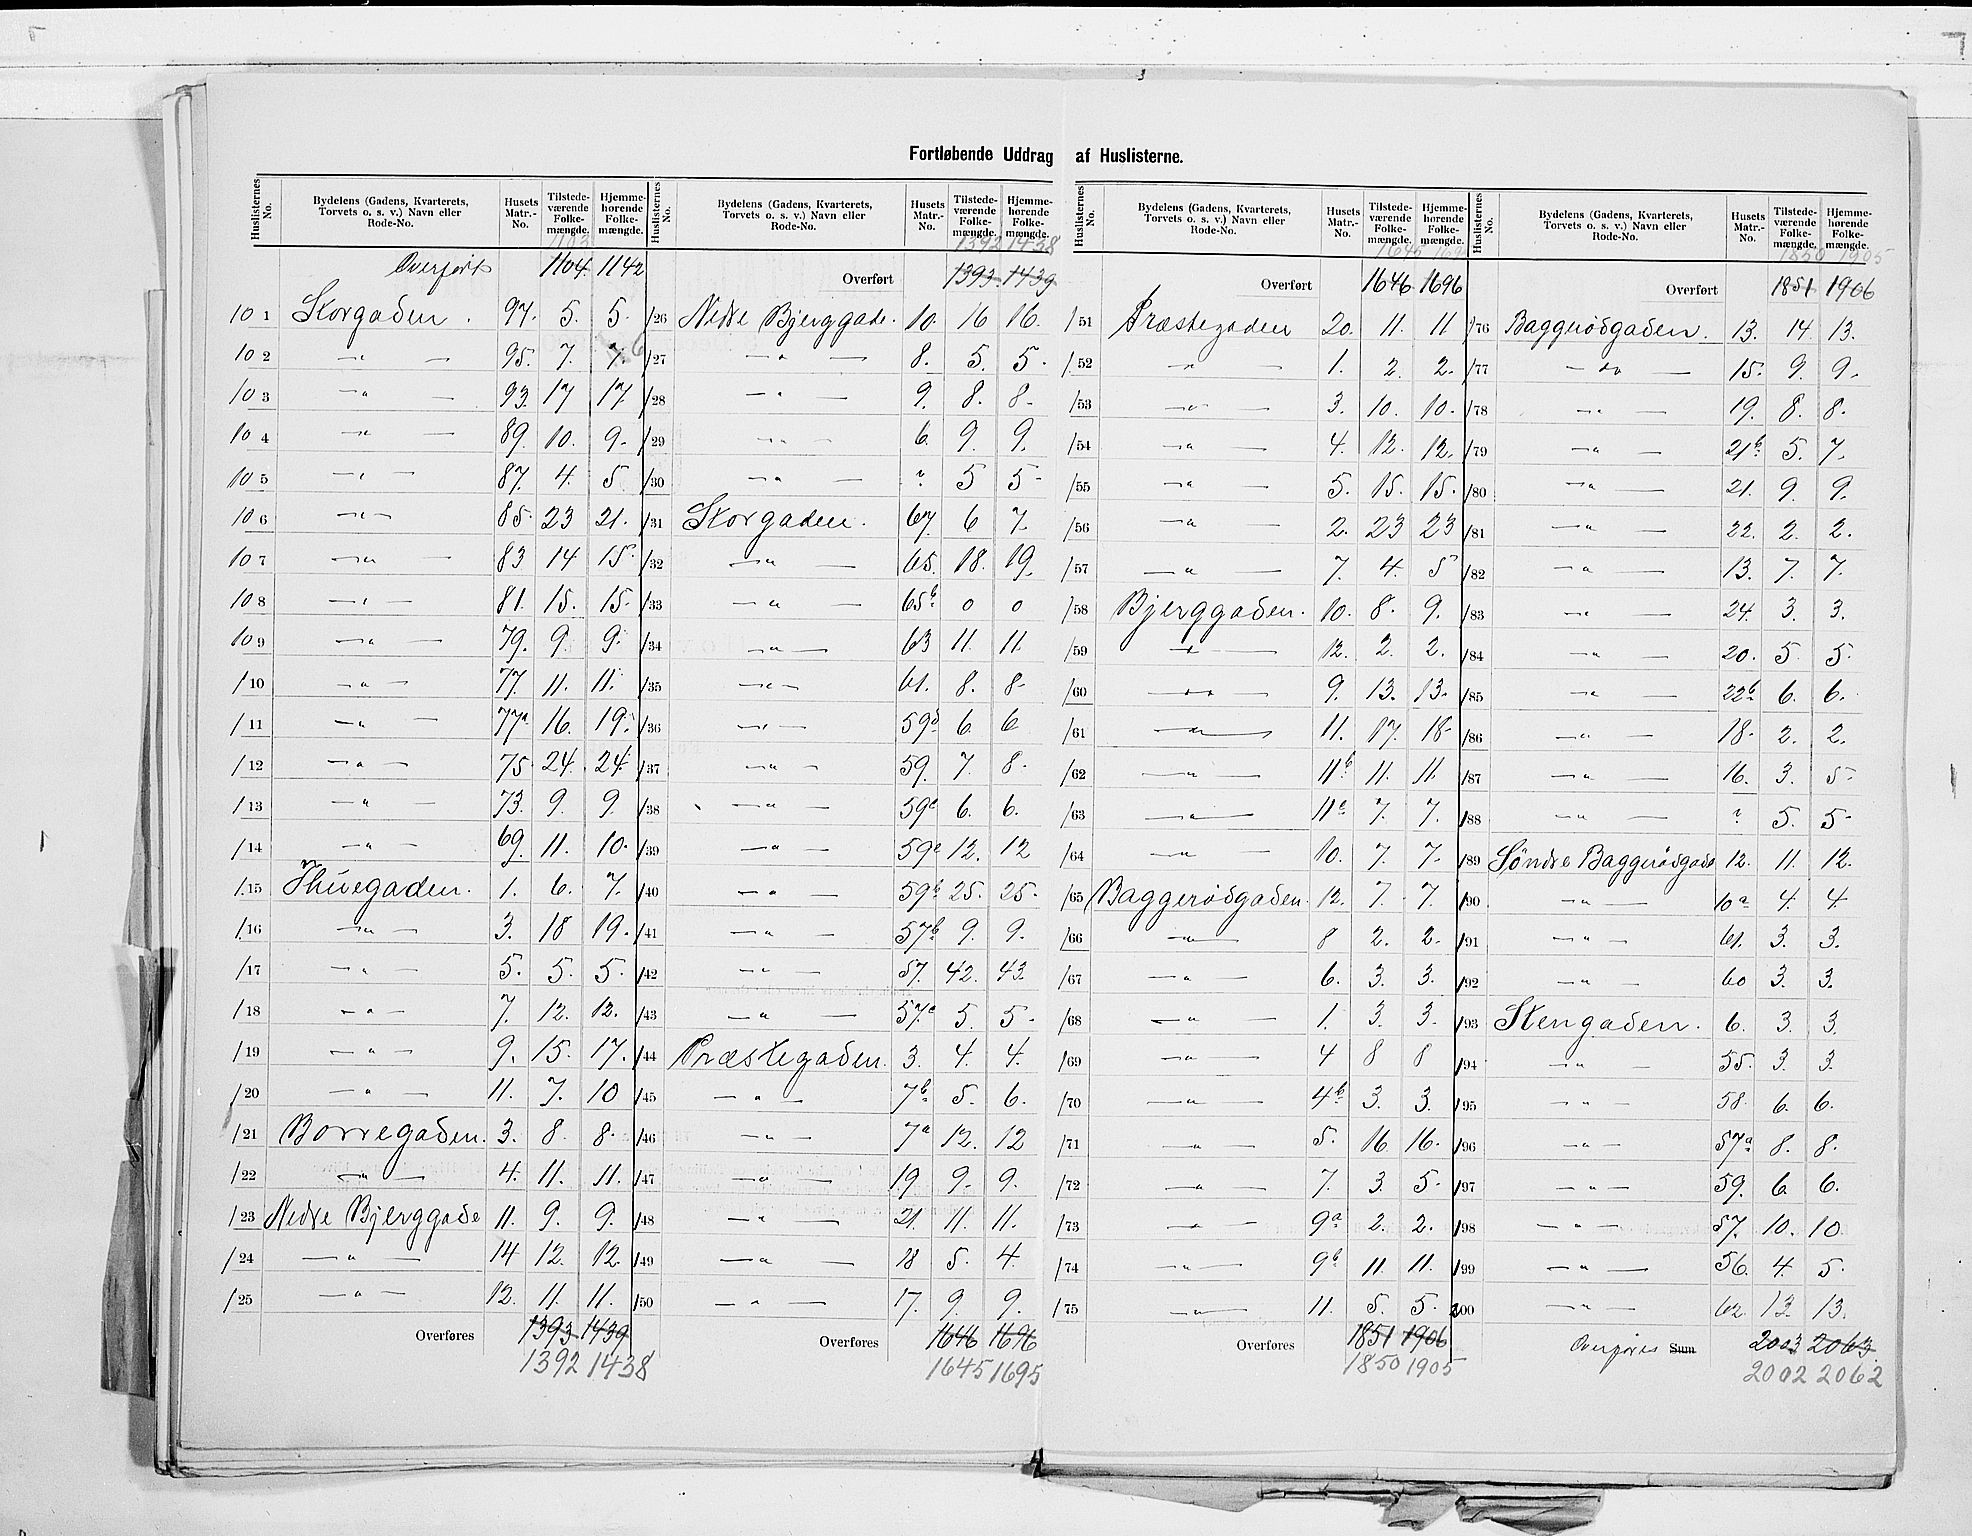 Fortløbende Uddrag af Huslisterne.
Huslisternes No. | Bydelens (Gadens, Kvarterets, Torvets o. s. v.) Navn eller Rode-No. | Husets Matr.-No. | Tilstedeværende Folkemængde. | Hjemmehørende Folkemængde.
1103
Overført 1104. 1142
101 Storgaden . 97. 5. 5.
102 —„— 95. 7. 7. 6
103 —„— 93. 17 17.
104 —„— 89. 10. 9.
105 —„— 87. 4. 5
106 —„— 85. 23 21.
107 —„— 83 14 15.
108 —„— 81. 15. 15.
109 —„— 79. 9. 9.
/10 —„— 77. 11. 11.
/11 —„— 77a 16. 19.
/12 —„— 75. 24. 24.
/13 —„— 73. 9. 9.
/14 —„— 69. 11. 10.
/15 Thuegaden. 1. 6. 7.
/16 —„— 3. 18 19.
/17 —„— 5. 5. 5.
/18 —„— 7. 12. 12.
/19 —„— 9. 15. 17.
/20 —„— 11. 7. 10
/21 Borregaden. 3. 8. 8.
/22 —„— 4. 11. 11.
/23 Nedre Bjerggade 11. 9. 9.
/24 —„— 14 12. 12.
/25 —„— 12. 11. 11.
Overføres 1393 1439
1392 1438
Huslisternes No. | Bydelens (Gadens, Kvarterets, Torvets o. s. v.) Navn eller Rode-No. | Husets Matr.-No. | Tilstedeværende Folkemængde. | Hjemmehørende Folkemængde.
1392 1438
Overført 1393. 1439
/26 Nedre Bjerggade. 10. 16 16.
/27 —„— 8. 5. 5.
/28 —„— 9. 8. 8.
/29 —„— 6. 9. 9.
/30 —„— ? 5 5
/31 Storgaden. 67. 6 7.
/32 —„— 65. 18. 19.
/33 —„— 65b 0 0
/34 —„— 63 11. 11.
/35 —„— 61. 8. 8
/36 —„— 59d 6. 6
/37 —„— 59. 7. 8.
/38 —„— 59c 6. 6.
/39 —„— 59a 12. 12
/40 —„— 59b 25. 25.
/41 —„— 57b 9. 9.
/42 —„— 57. 42. 43.
/43 —„— 57a 5. 5
/44 Præstegaden. 3. 4. 4.
/45 —„— 7b 5. 6.
/46 —„— 7a 12. 12
/47 —„— 19 9. 9.
/48 —„— 21. 11. 11.
/49 —„— 18 5. 4.
/50 —„— 17. 9. 9.
Overføres 1646 1696
1645 1695
Huslisternes No. | Bydelens (Gadens, Kvarterets, Torvets o. s. v.) Navn eller Rode-No. | Husets Matr.-No. | Tilstedeværende Folkemængde. | Hjemmehørende Folkemængde.
1645
Overført 1646 1696
/51 Præstegaden 20. 11. 11
/52 —„— 1. 2. 2.
/53 —„— 3. 10. 10.
/54 —„— 4. 12. 12.
/55 —„— 5. 15. 15.
/56 —„— 2. 23 23
/57 —„— 7. 4. 5
/58 Bjerggaden. 10. 8. 9.
/59 —„— 12. 2. 2.
/60 —„— 9. 13. 13.
/61 —„— 11. 17. 18
/62 —„— 11b 11. 11.
/63 —„— 11a 7. 7.
/64 —„— 10. 7. 7.
/65 Baggerødgaden. 12. 7. 7.
/66 —„— 8 2. 2.
/67 —„— 6. 3. 3.
/68 —„— 1. 3. 3.
/69 —„— 4 8 8
/70 —„— 4b 3. 3.
/71 —„— 5. 16 16.
/72 —„— 7. 3. 5.
/73 —„— 9a 2. 2.
/74 —„— 9b 11. 11.
/75 —„— 11. 5. 5.
Overføres 1851 1906
1850 1905
Huslisternes No. | Bydelens (Gadens, Kvarterets, Torvets o. s. v.) Navn eller Rode-No. | Husets Matr.-No. | Tilstedeværende Folkemængde. | Hjemmehørende Folkemængde.
1850 1905
Overført 1851 1906
/76 Baggerødgaden. 13. 14. 13.
/77 —„— 15. 9. 9.
/78 —„— 19. 8. 8.
/79 —„— 21b 5. 7.
/80 —„— 21. 9. 9.
/81 —„— 22. 2. 2.
/82 —„— 13. 7. 7.
/83 —„— 24. 3. 3.
/84 —„— 20. 5. 5.
/85 —„— 22b 6. 6.
/86 —„— 18. 2. 2.
/87 —„— 16. 3. 5
/88 —„— ? 5. 5
/89 Søndre Baggerødgade 12. 11. 12.
/90 —„— 10a 4. 4.
/91 —„— 61. 3. 3.
/92 —„— 60 3. 3.
/93 Stengaden. 6. 3. 3.
/94 —„— 55. 3. 3.
/95 —„— 58. 6. 6.
/96 —„— 57a 8. 8.
/97 —„— 59. 6. 6.
/98 —„— 57. 10. 10.
/99 —„— 56. 4. 5.
200 —„— 62. 13. 13.
Overføres Sum 2003 2063
2002 2062